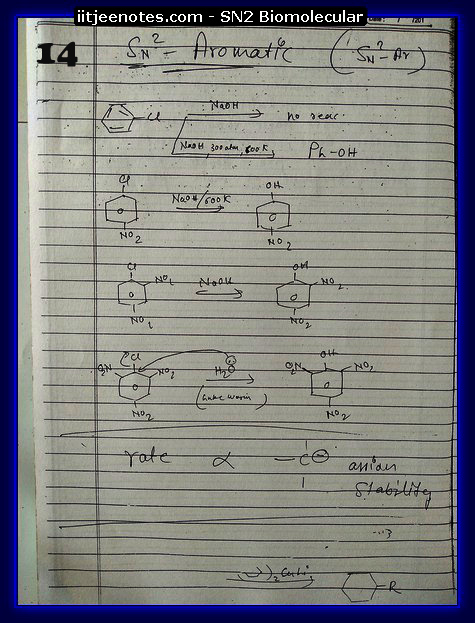 iitjeenotes.com - SN2 Biomolecular
14
SN² - Aromatic (SN² - Ar)
Cl NaOH no reac
NaOH 300 atm, 600K Ph-OH
Cl OH
NaOH/600K
NO2 NO2
Cl NO2 OH NO2
NaOH
NO2 NO2
O2N Cl NO2 H2O O2N OH NO2
NO2 NO2
rate ∝ -C⊖ anion
Stability
)2CuLi
R